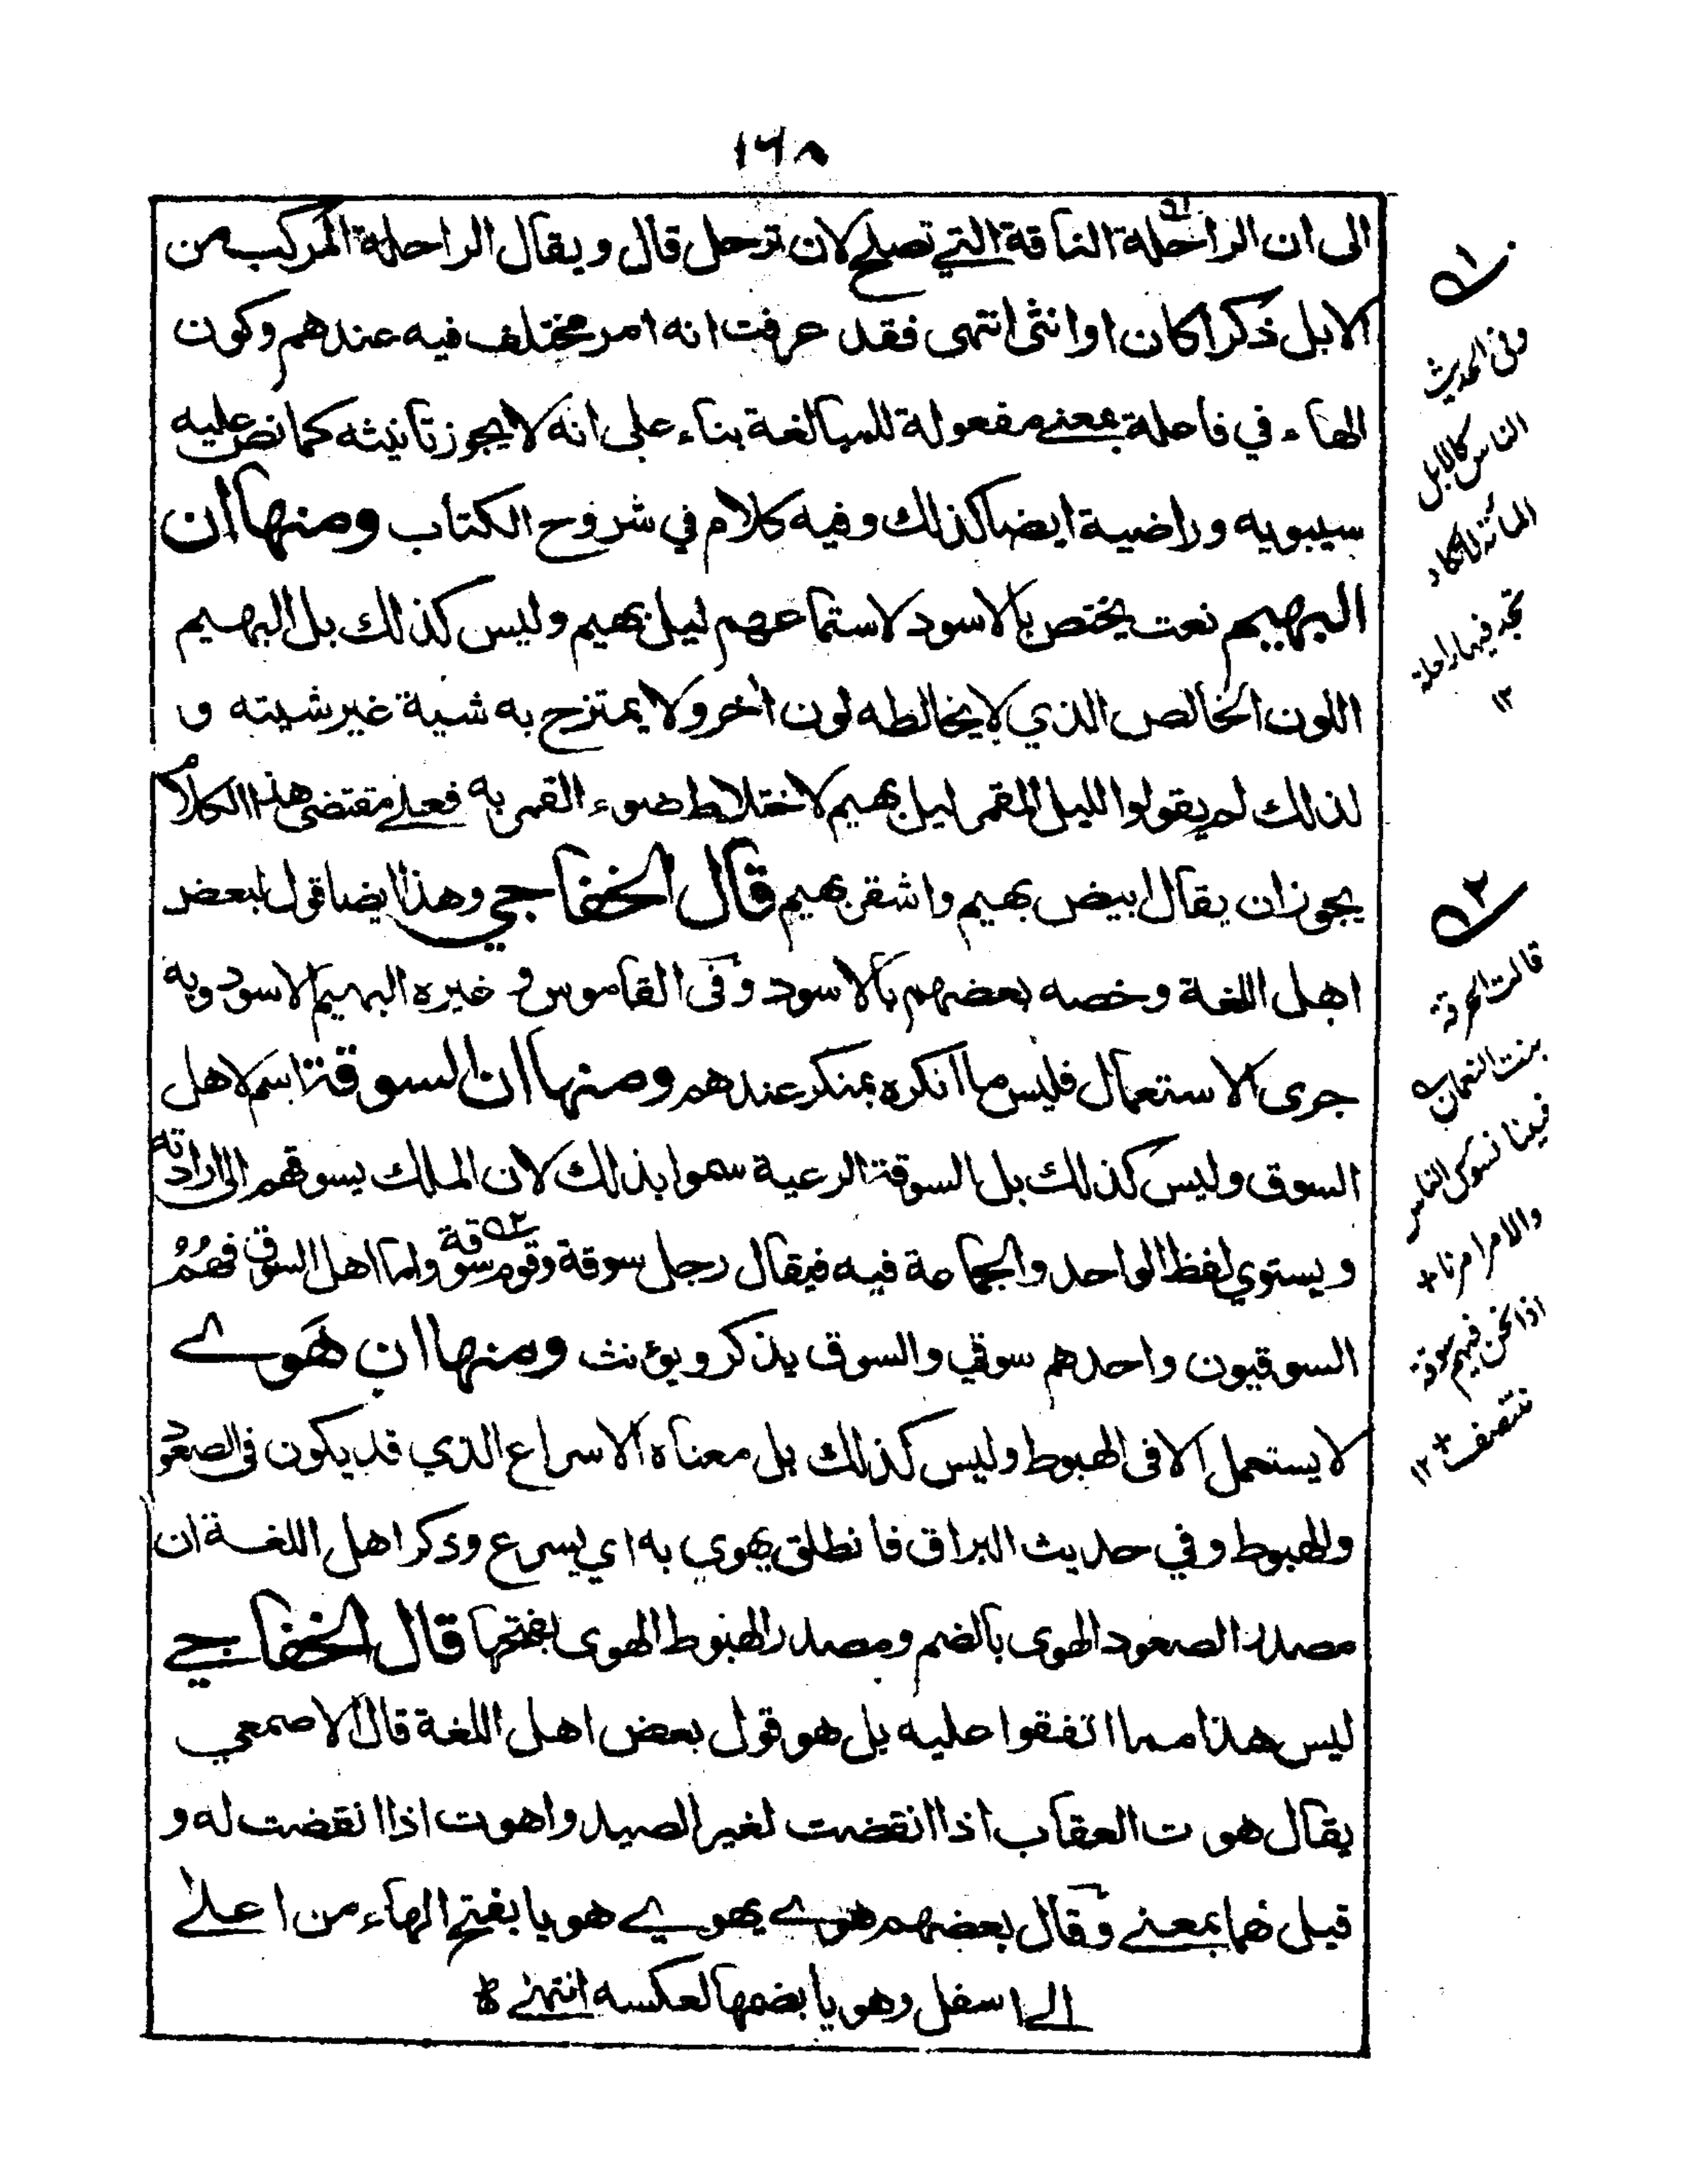 ١٦٨
الى ان الراحلة الناقة التي تصلح لان ترحل قال ويقال الراحلة المركب من
الابل ذكرا كان او انثى انتهى فقد عرفت انه امر مختلف فيه عندهم وكون
الهاء في فاعلة بمعنے مفعولة للمبالغة بناء على انه لا يجوز تانيثه كما نص عليه
سيبويه وراضية ايضا كذلك وفيه كلام في شروح الكتاب ومنها ان
البهيم نعت يختص بالاسود لاستماعهم ليل بهيم وليس كذلك بل البهيم
اللون الخالص الذي لا يخالطه لون اخر ولا يمتزج به شية غير شيته و
لذلك لم يقولوا لليل المقمر ليل بهيم لاختلاط ضوء القمر به فعلے مقتضى هذا الكلام
يجوز ان يقال ابيض بهيم واشقر بهيم قال الخفاجي وهذا ايضا قول لبعض
اهل اللغة وخصه بعضهم بالاسود وفى القاموس و غيره البهيم الاسود وبه
جرى الاستعمال فليس ما انكره بمنكر عندهم ومنها ان السوقة اسم لاهل
السوق وليس كذلك بل السوقة الرعية سموا بذلك لان الملك يسوقهم الى ارادته
ويستوي لفظ الواحد والجماعة فيه فيقال رجل سوقة وقوم سوقة واما اهل السوق فهم
السوقيون واحدهم سوقي والسوق يذكر ويؤنث ومنها ان هَوے
لا يستعمل الا فى الهبوط وليس كذلك بل معناه الاسراع الذي قد يكون فى الصعود
والهبوط وفي حديث البراق فانطلق يهوي به اي يسرع وذكر اهل اللغة ان
مصدر الصعود الهوى بالضم ومصدر الهبوط الهوى بفتحها قال الخفاجے
ليس هذا مما اتفقوا عليه بل هو قول بعض اهل اللغة قال الاصمعي
يقال هوت العقاب اذا انقضت لغير الصيد واهوت اذا انقضت له و
قيل هما بمعنے وقال بعضهم هوے يهوے هويا بفتح الهاء من اعلے
الے اسفل وهويا بضمها لعكسه انتهٰے
١
وفى الحديث
الناس كالابل
المائة لا تكاد
تجد فيها راحلة
١٢
٢
قالت الحرقة
بنت النعمان
فبينا نسوس الناس
والامر امرنا
اذا نحن فيهم سوقة
نتنصف ١٢